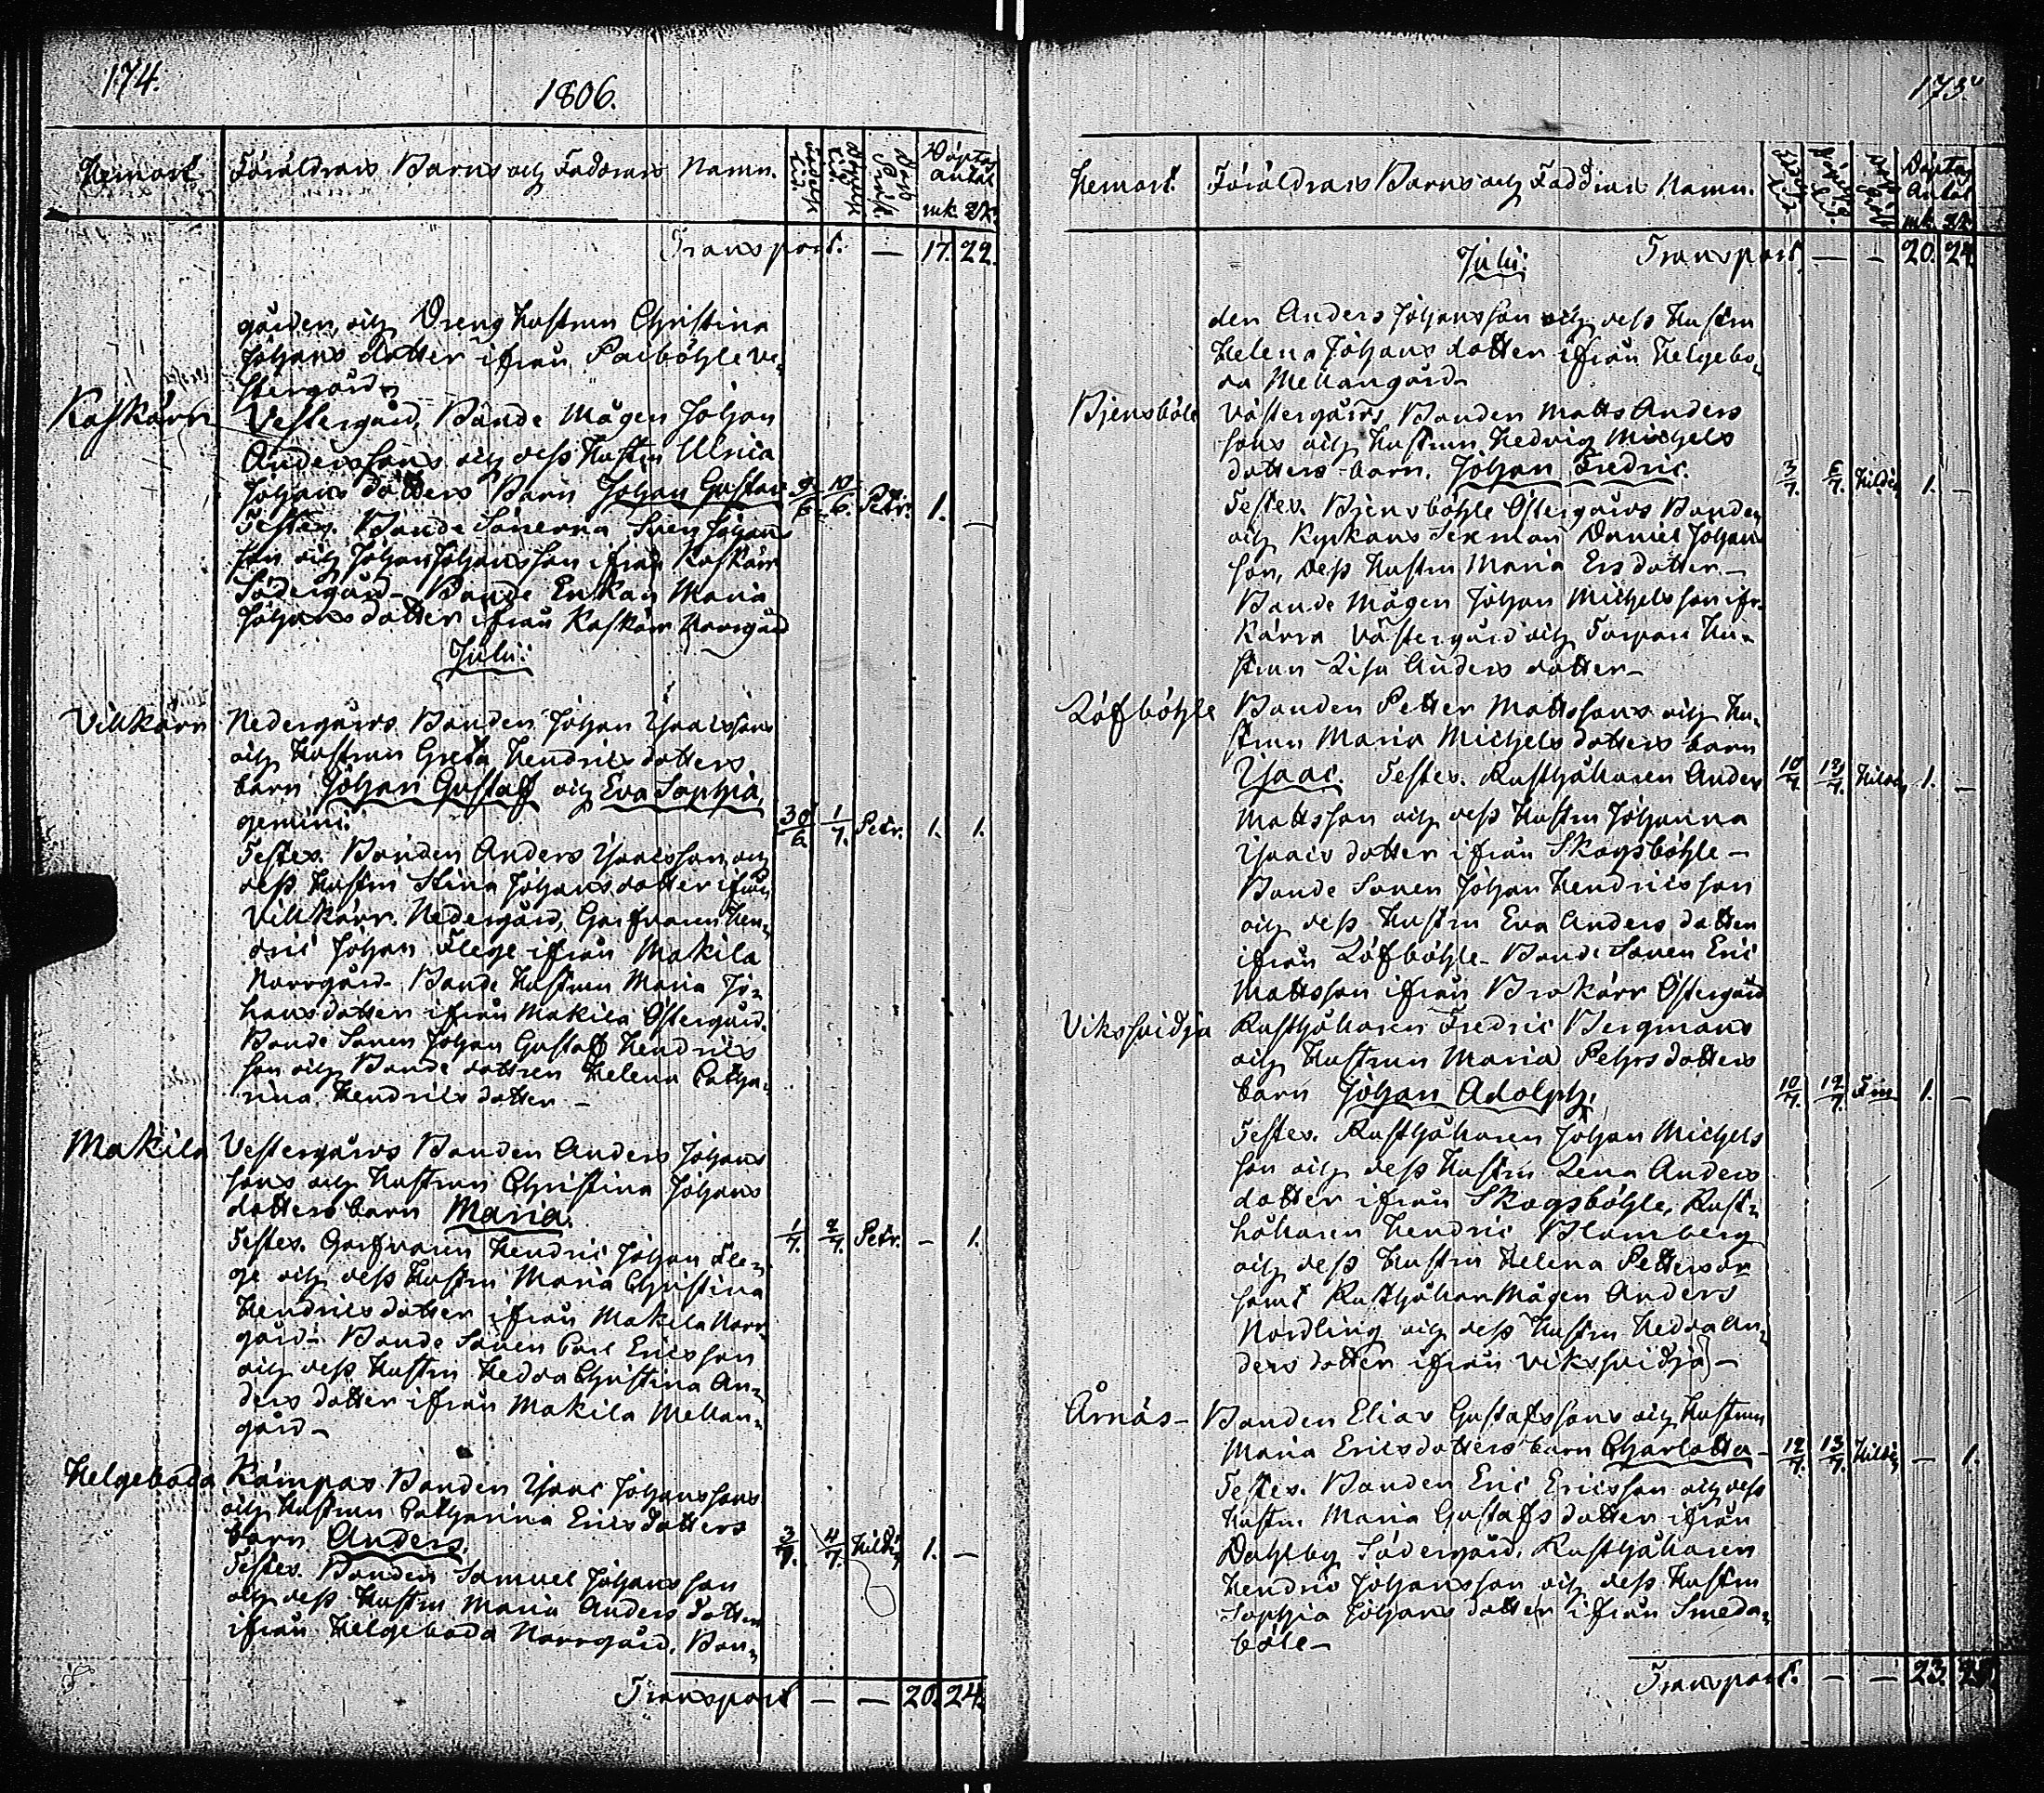 174.
1806.
Hemort
Föräldrars Barns och Faddrars Namn.
Döptas
antal
mk. qk.
Transport. — 17. 22.
gården, och Dreng hustrun Christina
Johans dotter ifrån Paiböhle ve-
stergård
Kaskärr Vestergård, Bonde Mågen Johan
Anderssons och dess Hustru Ulrica
Johans dotters Barn Johan Gustav 9/6 10/6. Petr. 1. —
Testes. Bonde Sönerna Sven Johans
son och Johan Johansson ifrån Kaskärr
Södergård - Bonde Enkan Maria
Johans dotter ifrån Kaskärr Norrgård
Julii:
Villkärr Nedergårds Bonden Johan Isacssons
och Hustrun Greta Hendrics dotters
barn Johan Gustaff och Eva Sophia,
gemini. 30/6 1/7. Petr. 1. 1.
Testes. Bonden Anders Isacsson och
dess Hustru Stina Johansdotter ifrån
Villkärr Nedergård, Garfvaren Hen-
dric Johan Flege ifrån Makila
Norrgård. Bonde Hustrun Maria Jo-
hans dotter ifrån Makila Östergård.
Bonde Sonen Johan Gustaff Hendrics
son och Bonde dottren Helena Catha-
rina Hendrics dotter —
Makila Vestergårds Bonden Anders Johans
sons och Hustrun Christina Johans
dotters barn Maria. 1/7. 2/7. Petr. — 1.
Testes. Garfvaren Hendric Johan Fle-
ge och dess Hustru Maria Christina
Hendrics dotter ifrån Makila Norr-
gård - Bonde Sonen Carl Ericsson
och dess Hustru Hedda Christina An-
ders dotter ifrån Makila Mellan-
gård —
Helgeboda Kämpas Bonden Isaac Johanssons
och Hustrun Catharina Erics dotters
barn Anders. 3/7. 4/7. Hildén 1. —
Testes. Bonden Samuel Johansson
och dess Hustru Maria Anders dotter
ifrån Helgeboda Norrgård, Bon-
Transport — — 20. 24.
175.
Hemort. Föräldrars Barns och Faddrars Namn.
Döptas
Antal
mk. qk.
Julii: Transport. — — 20. 24.
den Anders Johansson och dess Hustru
Helena Johans dotter ifrån Helgebo-
da Mellangård
Bjensböle Västergårds Bonden Matts Anders
sons och Hustrun Hedvig Michels
dotters barn. Johan Fredric. 3/7. 6/7. Hildén 1. —
Testes. Bjensböhle Östergårds Bonden
och Kyrkans Sexman Daniel Johans
son, dess Hustru Maria Ersdotter —
Bonde Mågen Johan Michelsson ifr.
Kärra Västergård och Torpare Hu-
strun Lisa Anders dotter —
Löfböhle Bonden Petter Mattssons och Hu-
strun Maria Michels dotters barn
Isaac. Testes. Rusthållaren Anders 10/7. 13/7. Hildén 1. —
Mattsson och dess Hustru Johanna
Isaacs dotter ifrån Skogsböhle —
Bonde Sonen Johan Hendricsson
och dess Hustru Eva Anders dotter
ifrån Löfböhle - Bonde Sonen Eric
Mattsson ifrån Brokärr Östergård
Vikssvidja Rusthållaren Fredric Bergmans
och Hustrun Maria Pehrs dotters
barn Johan Adolph. 10/7. 12/7. Fm 1. —
Testes. Rusthållaren Johan Michels
son och dess Hustru Lena Anders
dotter ifrån Skogsböhle, Rust-
hållaren Hendric Blomberg
och dess Hustru Helena Pettersdr
samt Rusthållar Mågen Anders
Nordling och dess Hustru Hedda An-
ders dotter ifrån Vikssvidja —
Årnäs - Bonden Elias Gustafssons och Hustrun
Maria Ericsdotters barn Charlotta - 12/7. 13/7. Hildén — 1.
Testes. Bonden Eric Ericsson och dess
Hustru Maria Gustafs dotter ifrån
Dahlby Södergård. Rusthållaren
Hendric Johansson och dess Hustru
Sophia Johans dotter ifrån Smeda-
böle —
Transport. — — 23. 25.